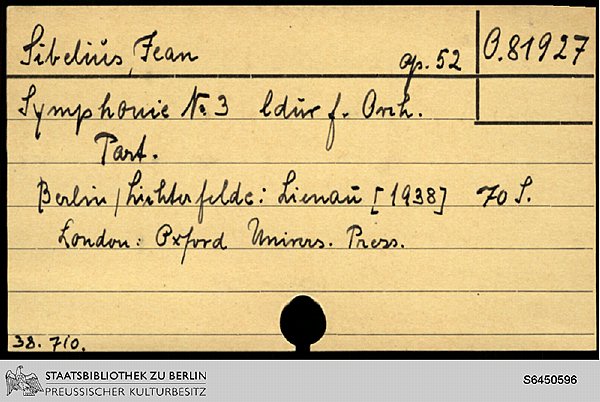 Sibelius, Jean op. 52 O.81927
Symphonie Nr. 3 Cdur f. Orch.
Part.
Berlin/Lichterfelde: Lienau [1938] 70 S.
London: Oxford Univers. Press.
38. 710.
STAATSBIBLIOTHEK ZU BERLIN
PREUSSISCHER KULTURBESITZ
S6450596